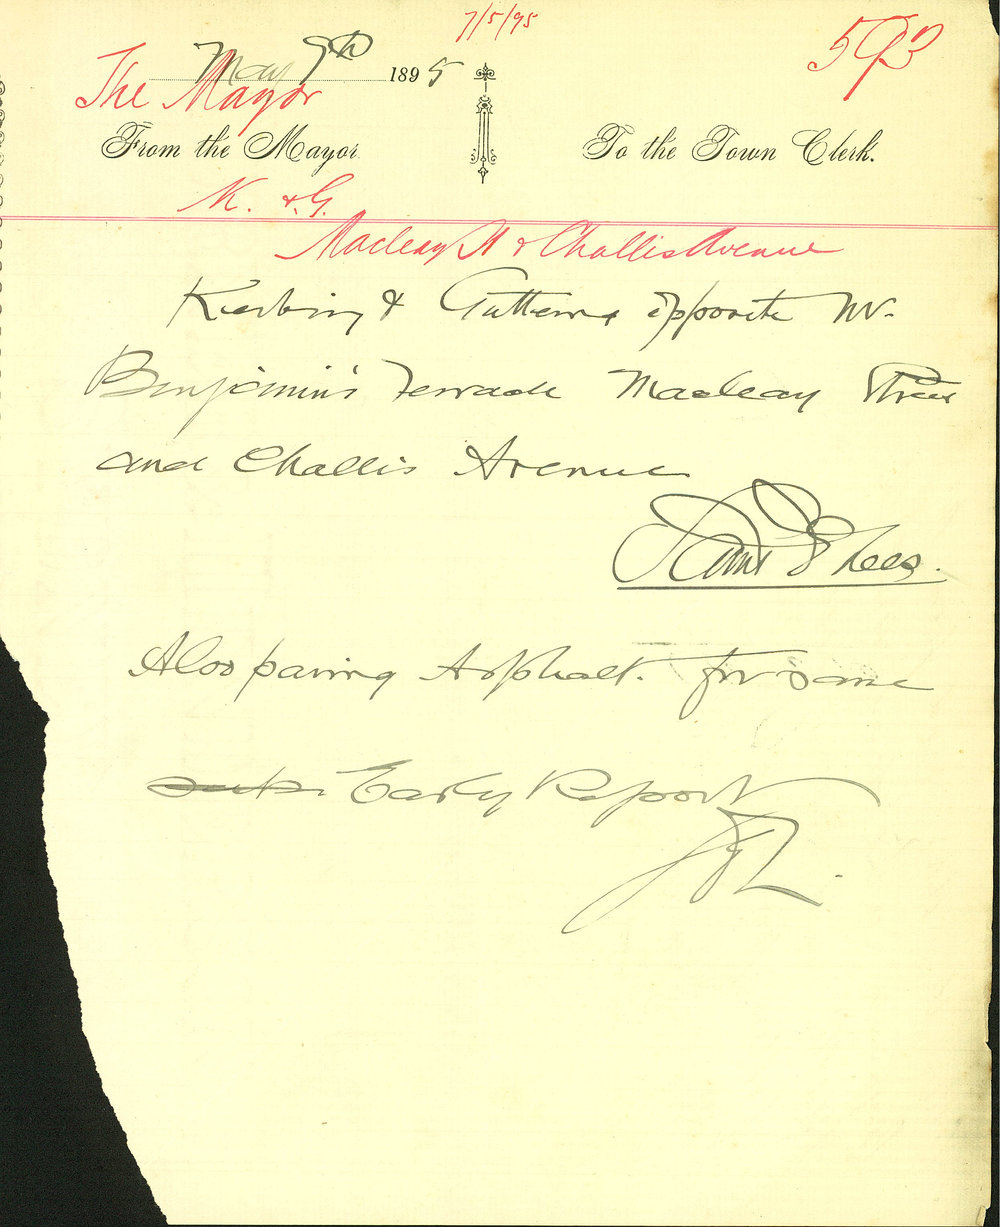 7/5/95
593
May 7th 1895
The Mayor
From the Mayor To the Town Clerk.
K. & G.
Macleay St & Challis Avenue
Kerbing & Guttering opposite Mr.
Benjamin's Terrace Macleay Street
and Challis Avenue
Saml E Lees.
Also paving Asphalt. for same
Early Report
SEL.